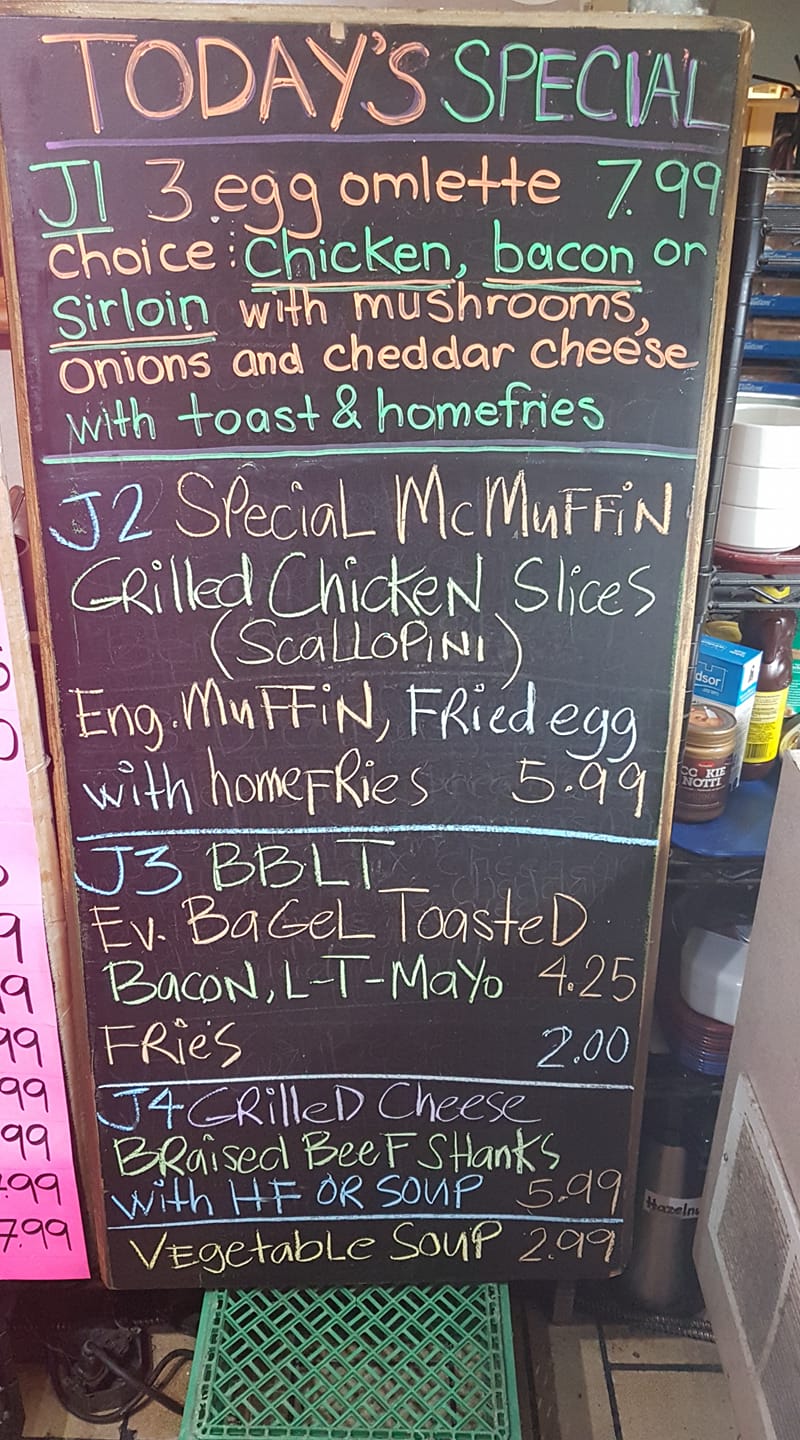 TODAY'S SPECIAL
J1 3 egg omlette 7.99
choice: Chicken, bacon or
Sirloin with mushrooms,
onions and cheddar cheese
with toast & homefries
J2 Special McMuffin
Grilled Chicken Slices
(Scallopini)
Eng. Muffin, Fried egg
with homefries 5.99
J3 BBLT
Ev. Bagel Toasted
Bacon, L-T-Mayo 4.25
Fries 2.00
J4 Grilled Cheese
Braised Beef Shanks
with HF OR SOUP 5.99
Vegetable Soup 2.99
dsor
NOTTI
Hazelnu
9
99
99
99
7.99